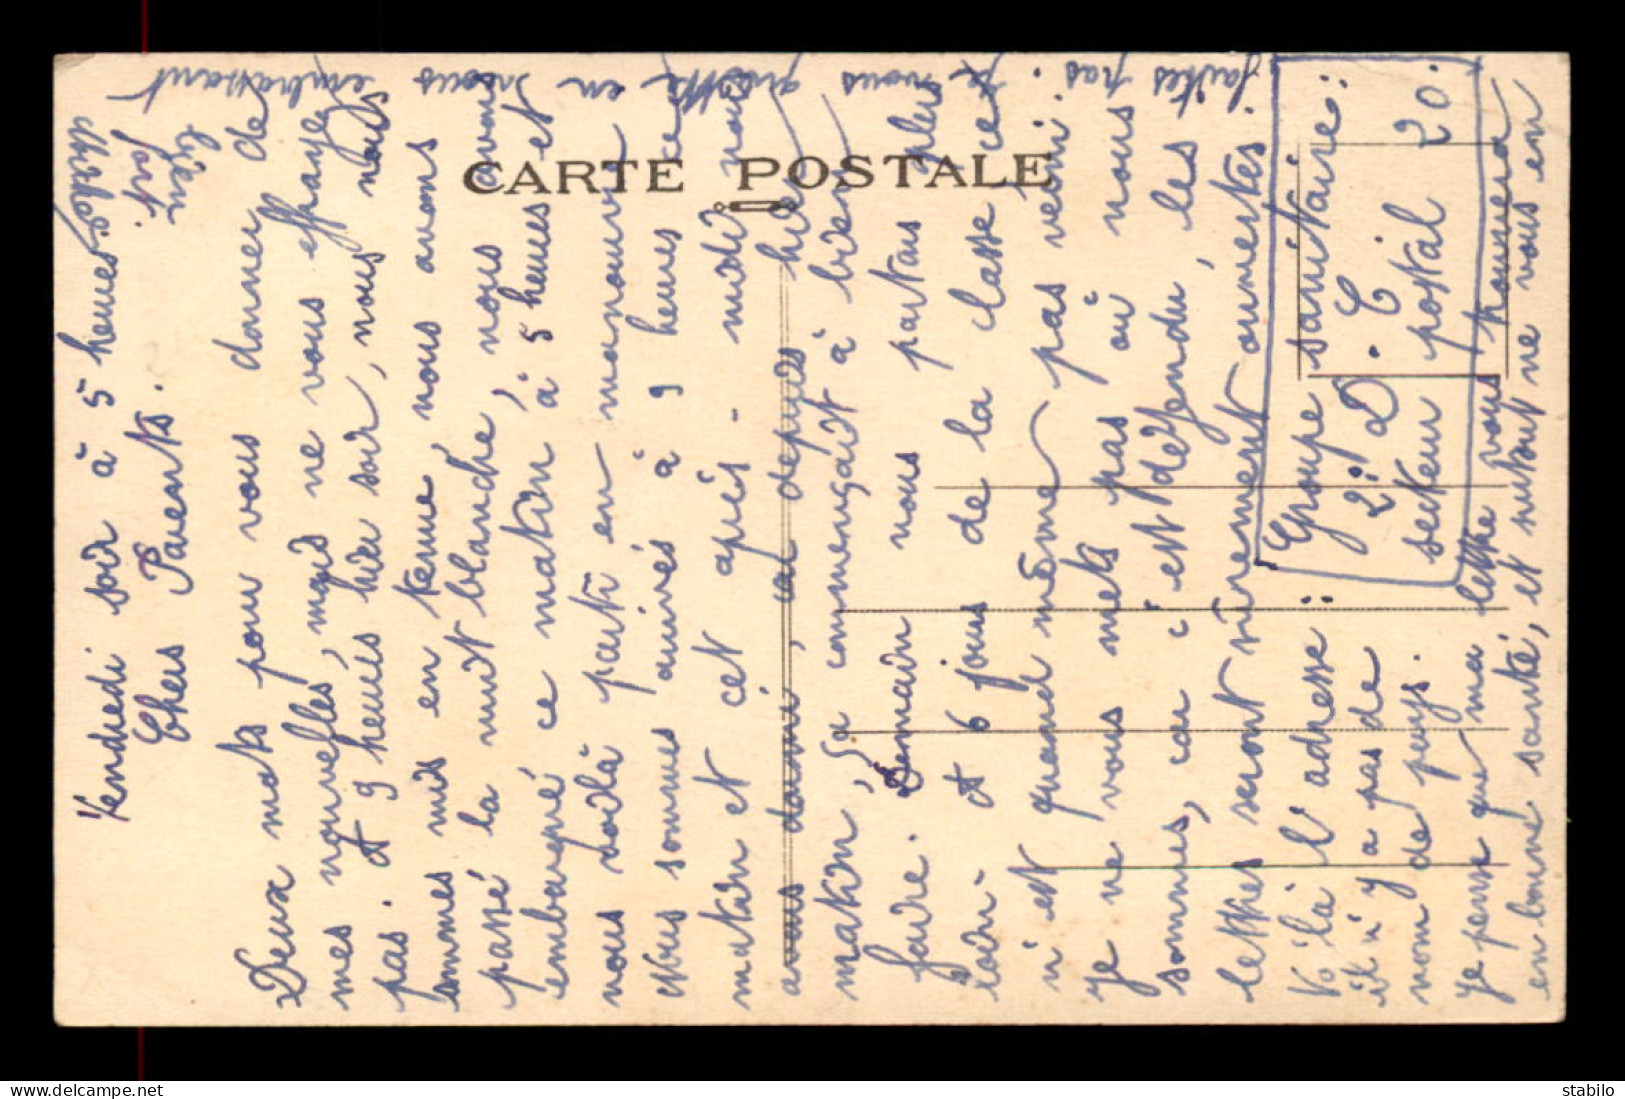 CARTE POSTALE
Vendredi soir à 5 heures
Chers Parents.
Deux mots pour vous donner de
mes nouvelles, mais ne vous effrayez
pas. A 9 heures hier soir, nous nous
sommes mis en tenue, nous avons
passé la nuit blanche, nous avons
embarqué ce matin à 5 heures et
nous voilà parti en manœuvre
Nous sommes arrivés à 9 heures ce
matin et cet après-midi nous
avons dormi, car depuis hier
matin, ça commençait à bien
faire. Demain nous partons plus
loin - A 6 jours de la classe ce
n'est quand même pas verni.
Je ne vous mets pas où nous
sommes, car c'est défendu, les
lettres seront sûrement ouvertes.
Voilà l'adresse :
il n'y a pas de
nom de pays.
Groupe sanitaire :
2e D. C
secteur postal 20.
Je pense que ma lettre vous trouvera
en bonne santé, et surtout ne vous en
faites pas. Je vous quitte en vous embrassant
bien
fort.
stabilo